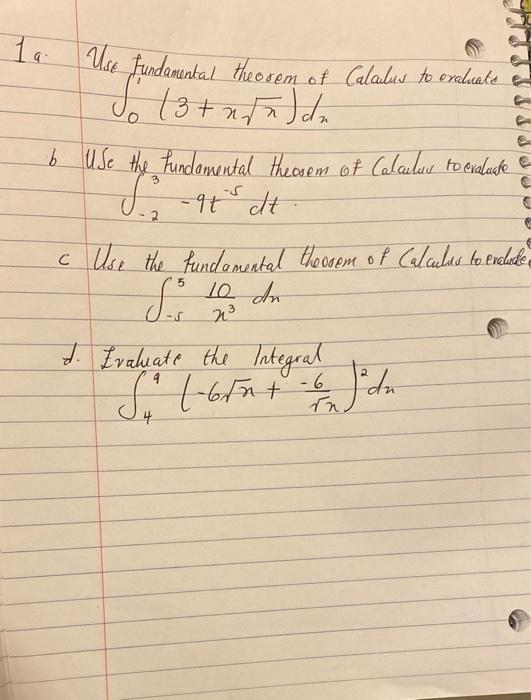 1a. Use fundamental theorem of Calculus to evaluate
∫₀¹ (3 + x√x) dx
b Use the fundamental theorem of Calculus to evaluate
∫₋₂³ -9t⁻⁵ dt.
c Use the fundamental theorem of Calculus to evaluate
∫₋₅⁵ 10/x³ dx
d. Evaluate the Integral
∫₄⁹ (-6√x + -6/√x)² dx